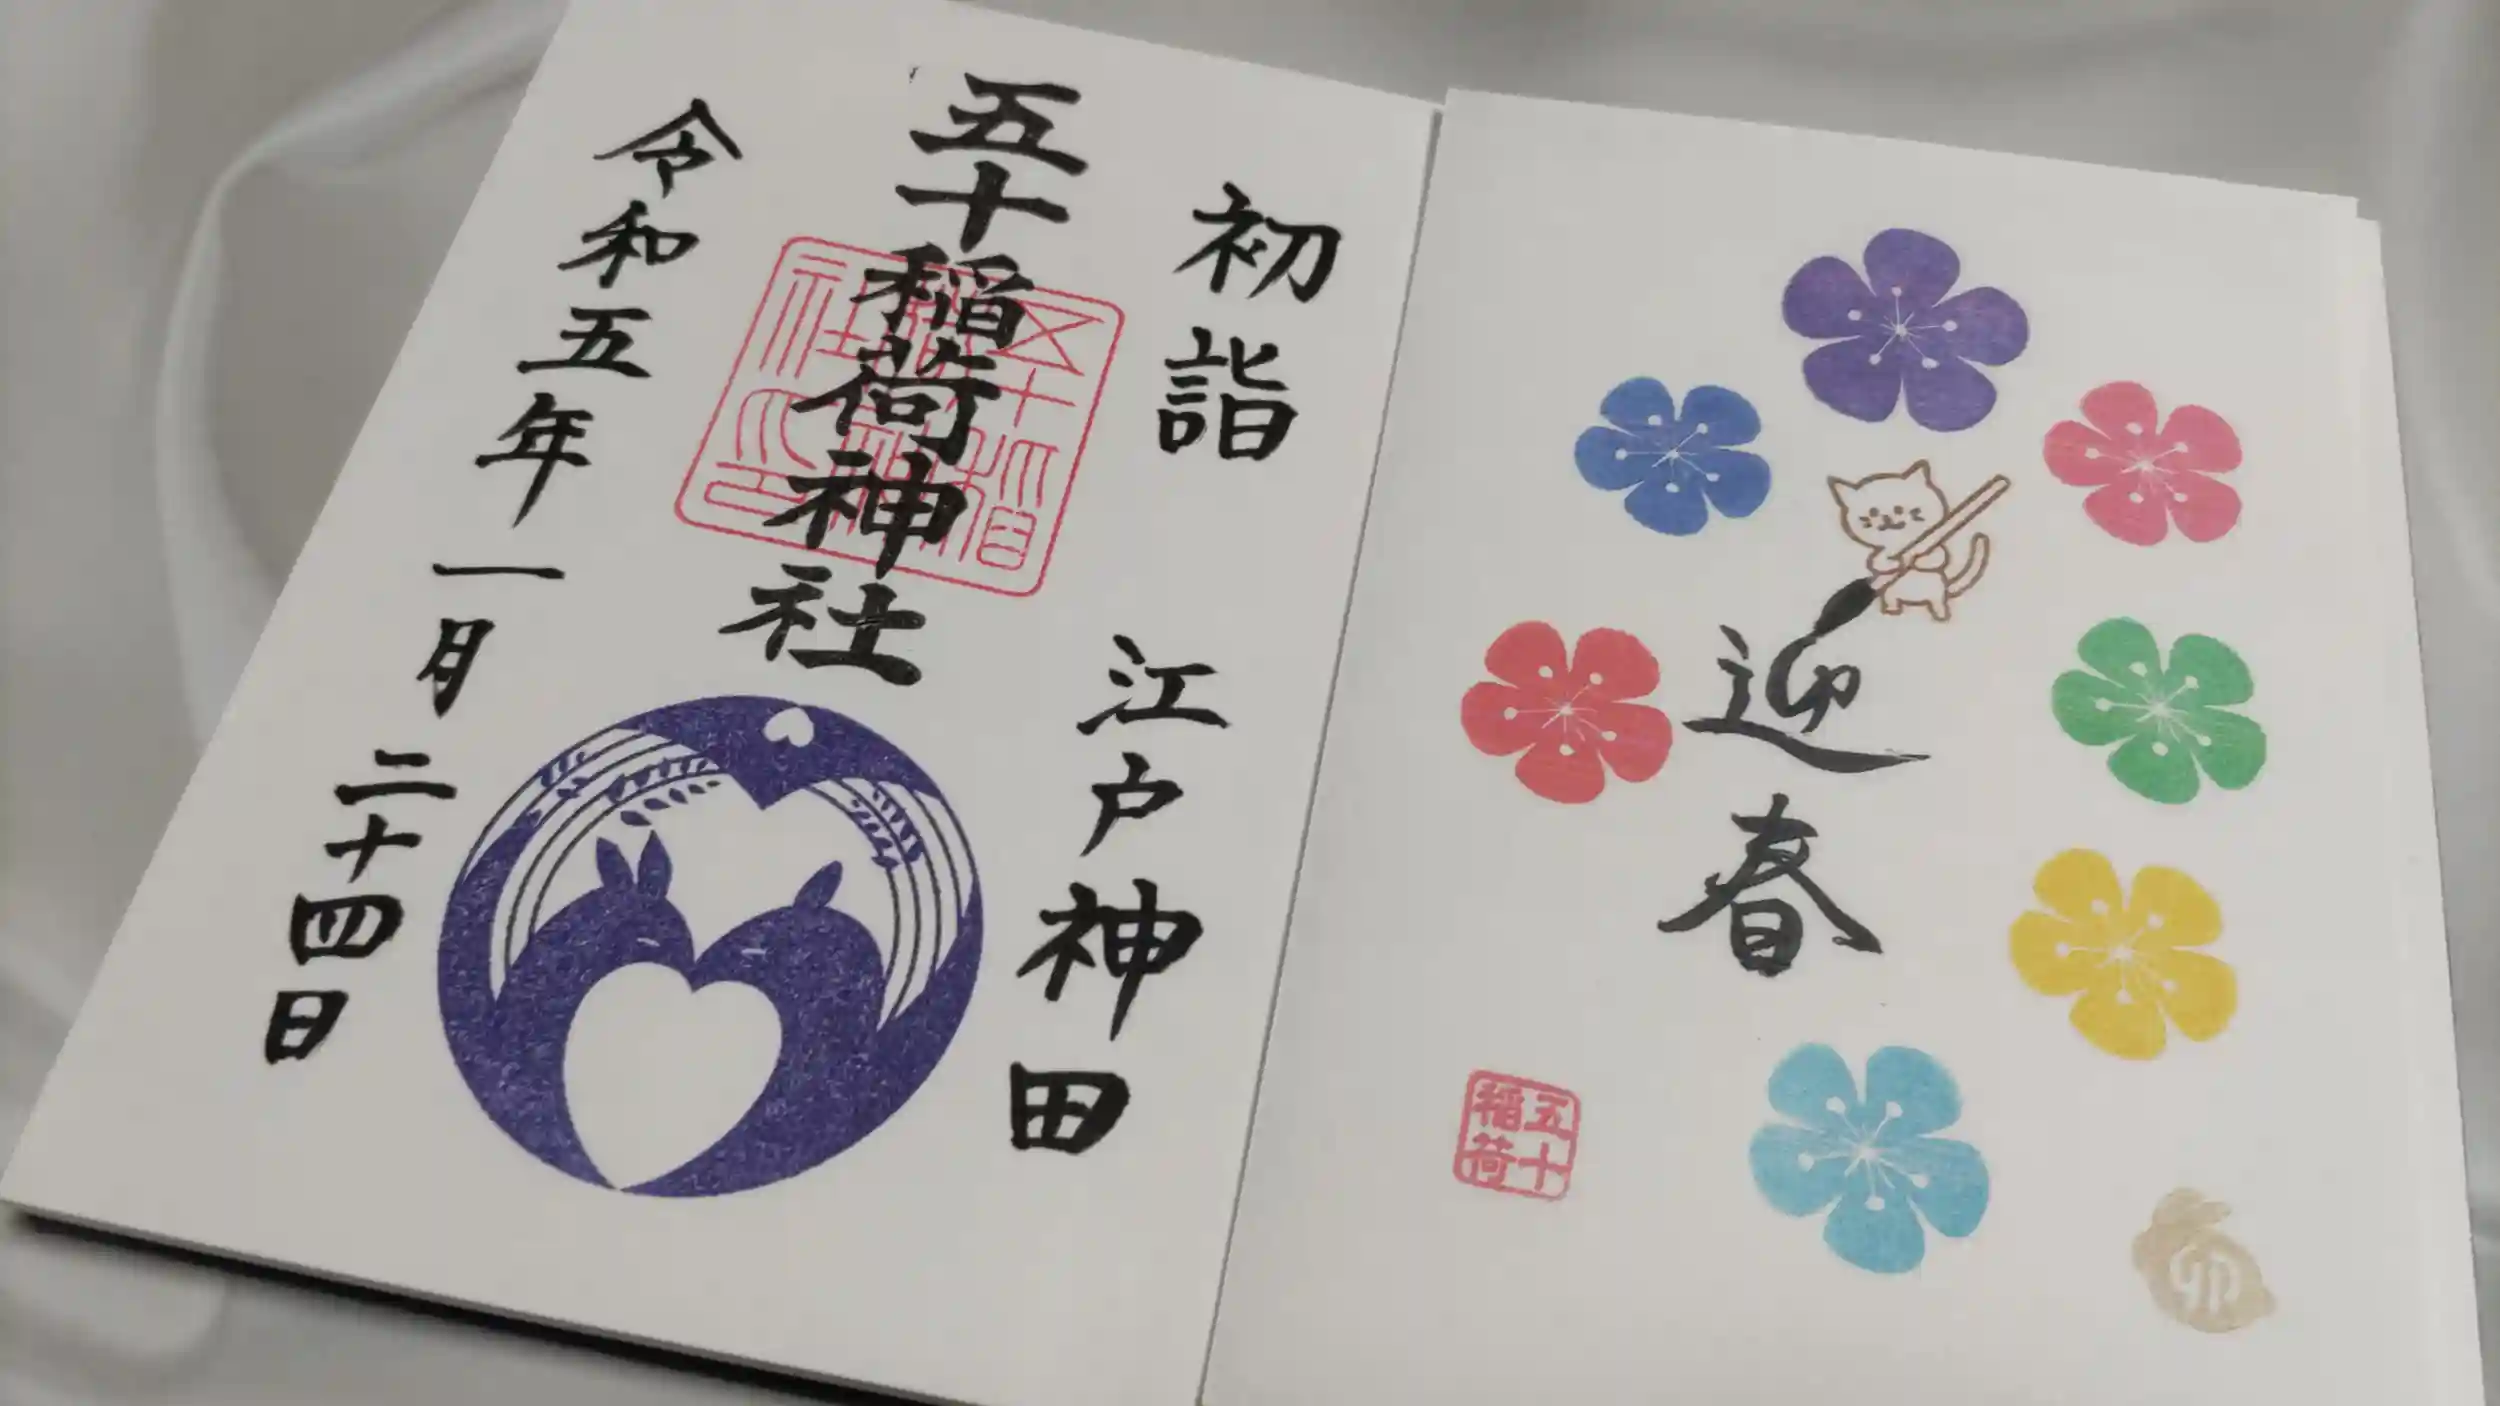 初詣
江戸神田
五十稲荷神社
令和五年一月二十四日
迎春
五十
稲荷
卯